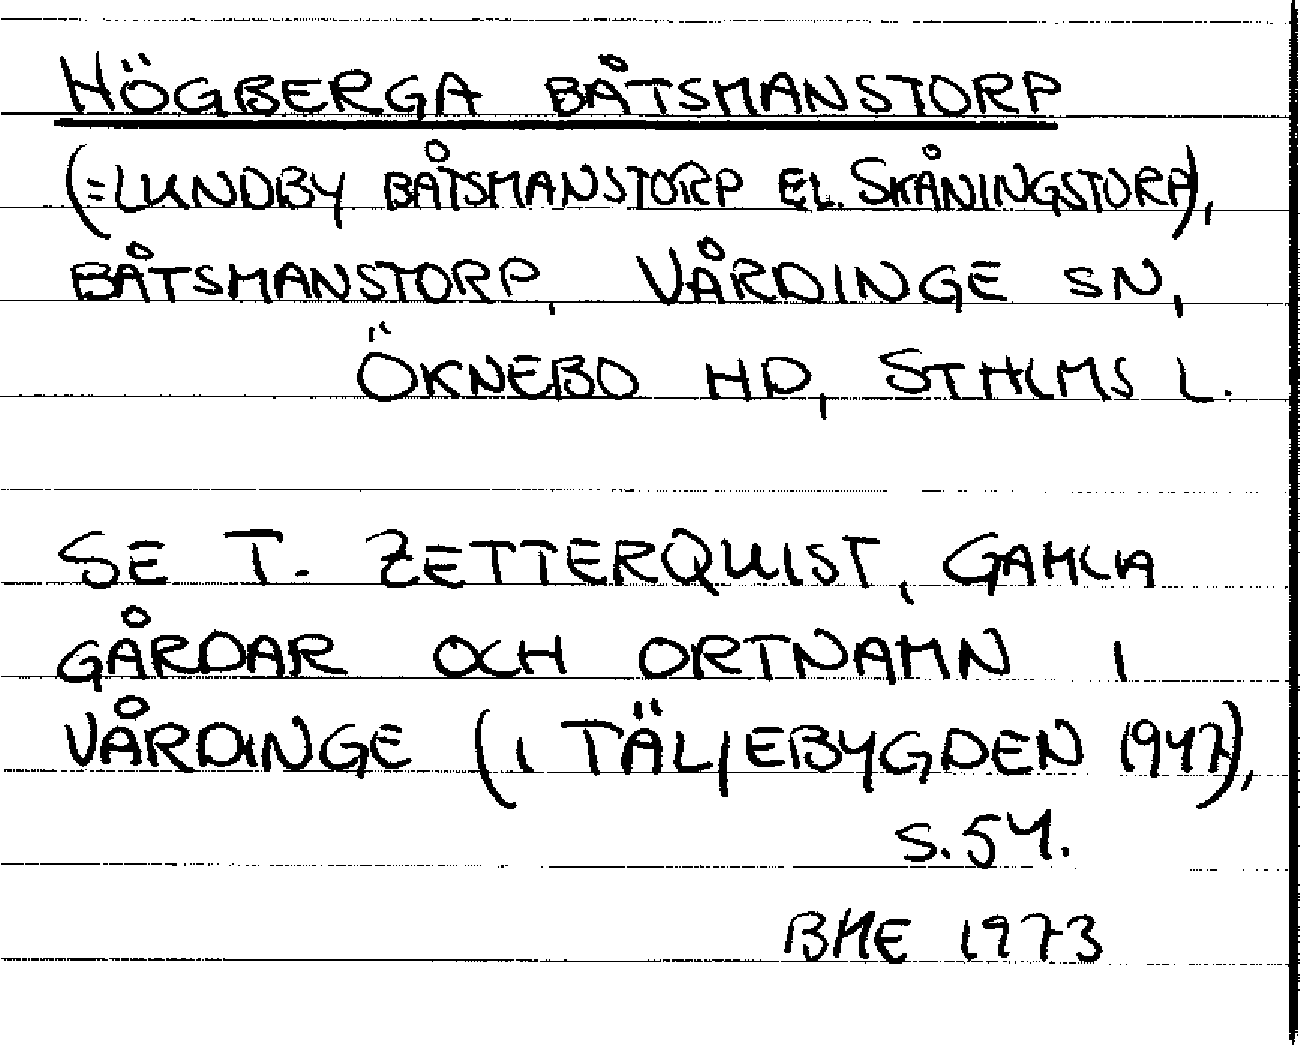 HÖGBERGA BÅTSMANSTORP
(=LUNDBY BÅTSMANSTORP EL. SKÅNINGSTORP),
BÅTSMANSTORP, VÅRDINGE SN,
ÖKNEBO HD, STHLMS L.
SE T. ZETTERQUIST, GAMLA
GÅRDAR OCH ORTNAMN I
VÅRDINGE (I TÄLJEBYGDEN 1947),
S. 54.
BME 1973